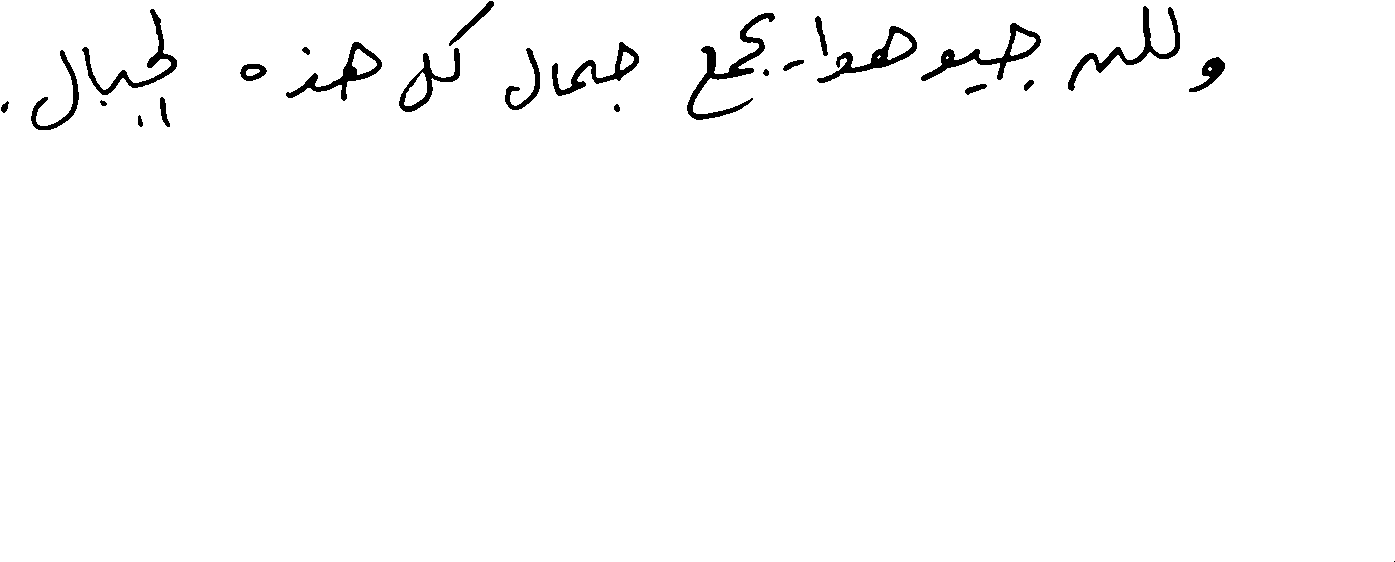 ولكن جيوهوا يجمع جمال كل هذه الجبال.